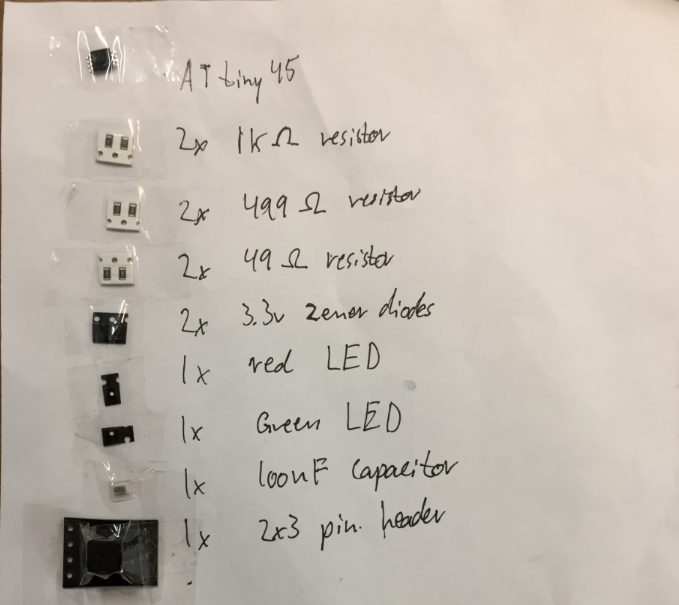 ATtiny 45
2x 1KΩ resistor
2x 499 Ω resistor
2x 49 Ω resistor
2x 3.3v zener diodes
1x red LED
1x Green LED
1x 100nF capacitor
1x 2x3 pin. header